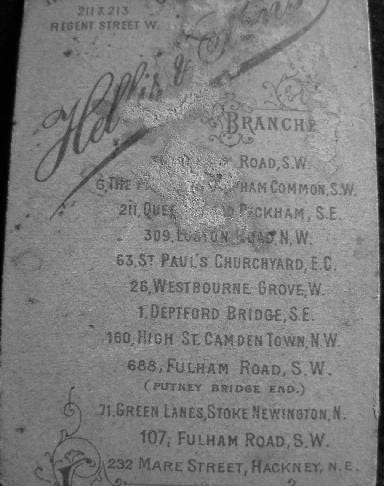 211 & 213
REGENT STREET W.
Hellis & Sons
BRANCHE
ROAD, S.W.
6, THE COMMON, S.W.
211, PECKHAM, S.E.
309, EUSTON ROAD, N.W.
63, ST PAUL'S CHURCHYARD, E.C.
26, WESTBOURNE GROVE, W.
1, DEPTFORD BRIDGE, S.E.
160, HIGH ST. CAMDEN TOWN, N.W.
688, FULHAM ROAD, S.W.
(PUTNEY BRIDGE END.)
71, GREEN LANES, STOKE NEWINGTON, N.
107, FULHAM ROAD, S.W.
232 MARE STREET, HACKNEY, N.E.